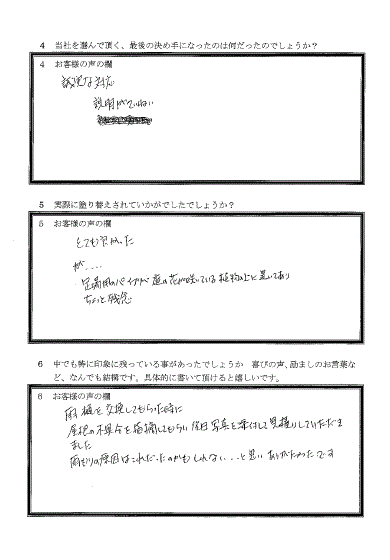 4 当社を選んで頂く、最後の決め手になったのは何だったのでしょうか？
4 お客様の声の欄
誠実な対応
説明がていねい
5 実際に塗り替えされていかがでしたでしょうか？
5 お客様の声の欄
とても良かった
が....
足場用のパイプが 庭の花が咲いている植物の上に置いてあり
ちょっと残念
6 中でも特に印象に残っている事があったでしょうか 喜びの声、励ましのお言葉な
ど、なんでも結構です。具体的に書いて頂けると嬉しいです。
6 お客様の声の欄
雨樋を交換してもらった時に
屋根の不具合を指摘してもらい 後日写真を添付して見積りしていただき
ました
雨もりの原因はこれだったのかもしれない...と思い ありがたかったです